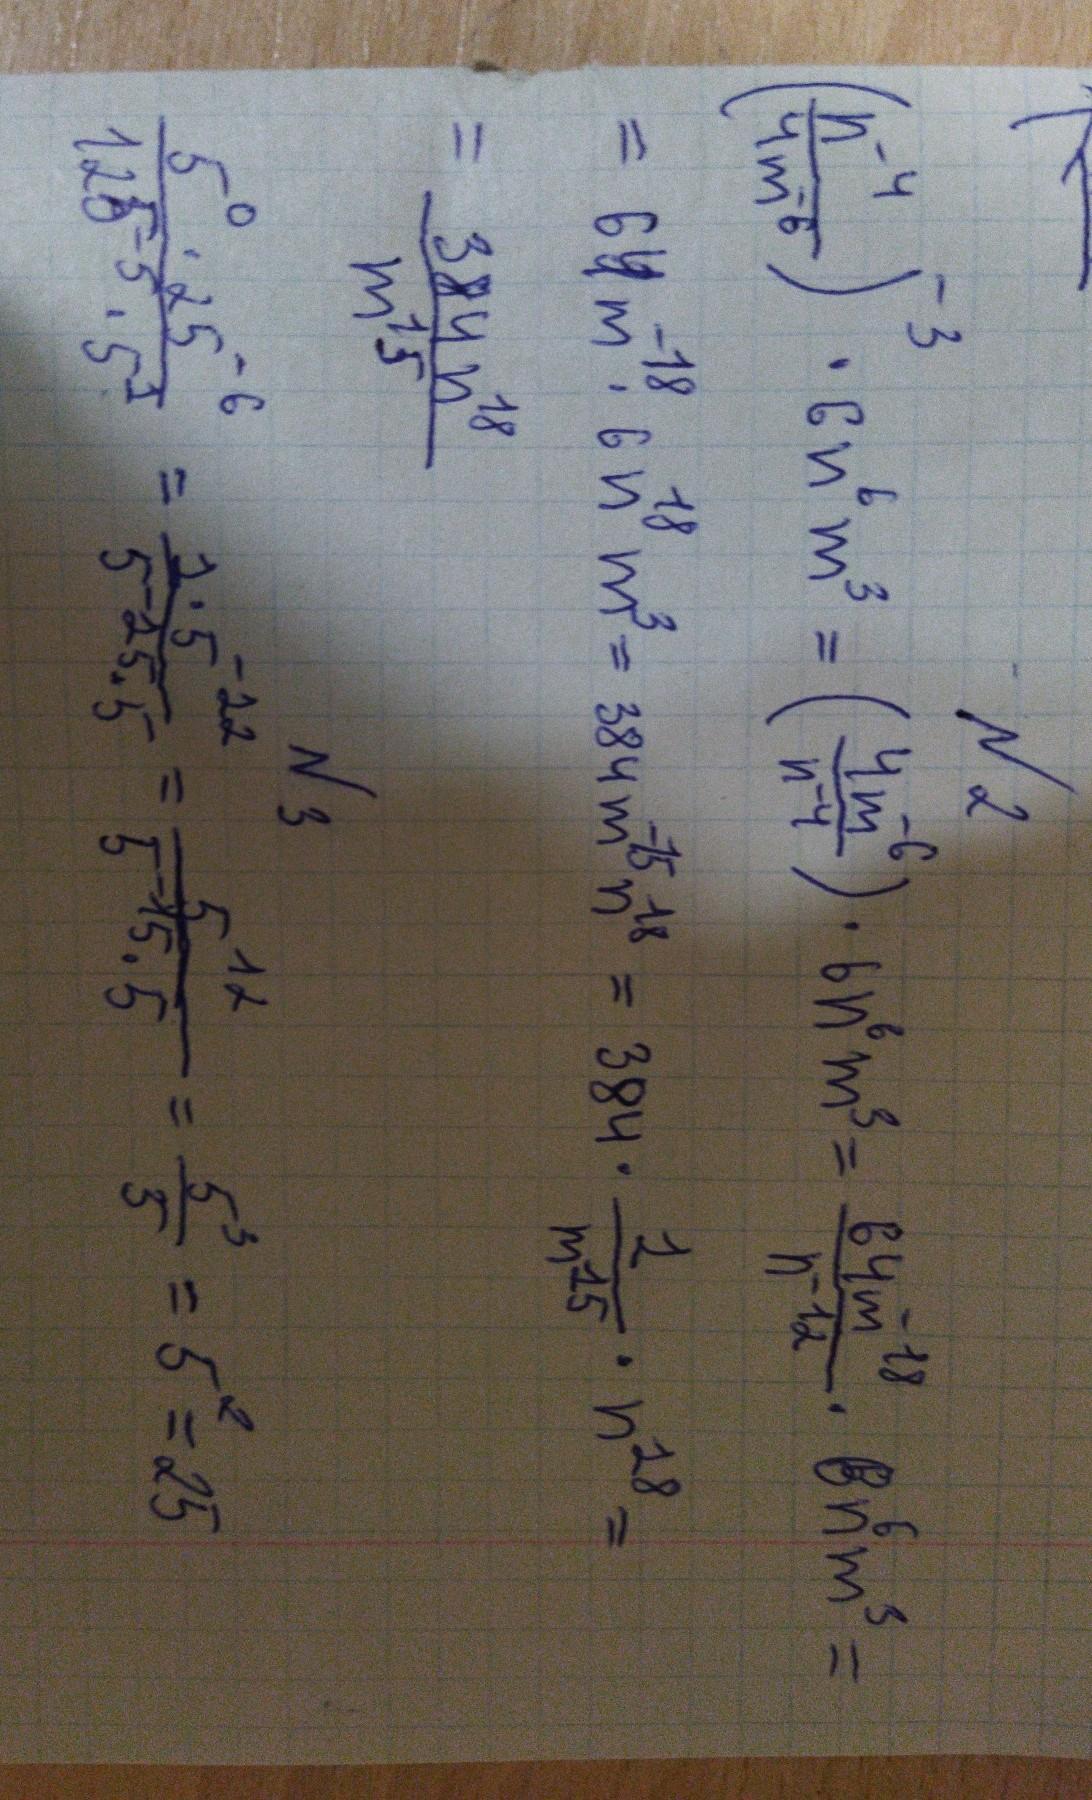 N 2
(n⁻⁴/4m⁻⁶)⁻³ · 6n⁶m³ = (4m⁻⁶/n⁻⁴) · 6n⁶m³ = 64m⁻¹⁸/n⁻¹² · 6n⁶m³ =
= 64m⁻¹⁸ · 6n¹⁸m³ = 384m⁻¹⁵n¹⁸ = 384 · 1/m¹⁵ · n¹⁸ =
= 384n¹⁸/m¹⁵
N 3
5⁰ · 25⁻⁶/125⁻⁵ · 5¹ = 1 · 5⁻¹²/5⁻¹⁵ · 5 = 5¹²/5⁻¹⁵ · 5 = 5³/5 = 5² = 25